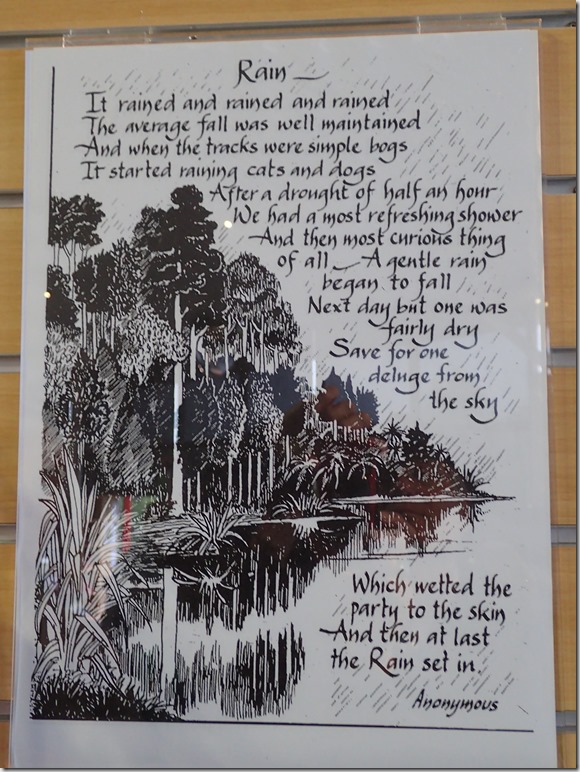 Rain
It rained and rained and rained
The average fall was well maintained
And when the tracks were simple bogs
It started raining cats and dogs
After a drought of half an hour
We had a most refreshing shower
And then most curious thing
of all _ A gentle rain
began to fall
Next day but one was
fairly dry
Save for one
deluge from
the sky
Which wetted the
party to the skin
And then at last
the Rain set in.
Anonymous